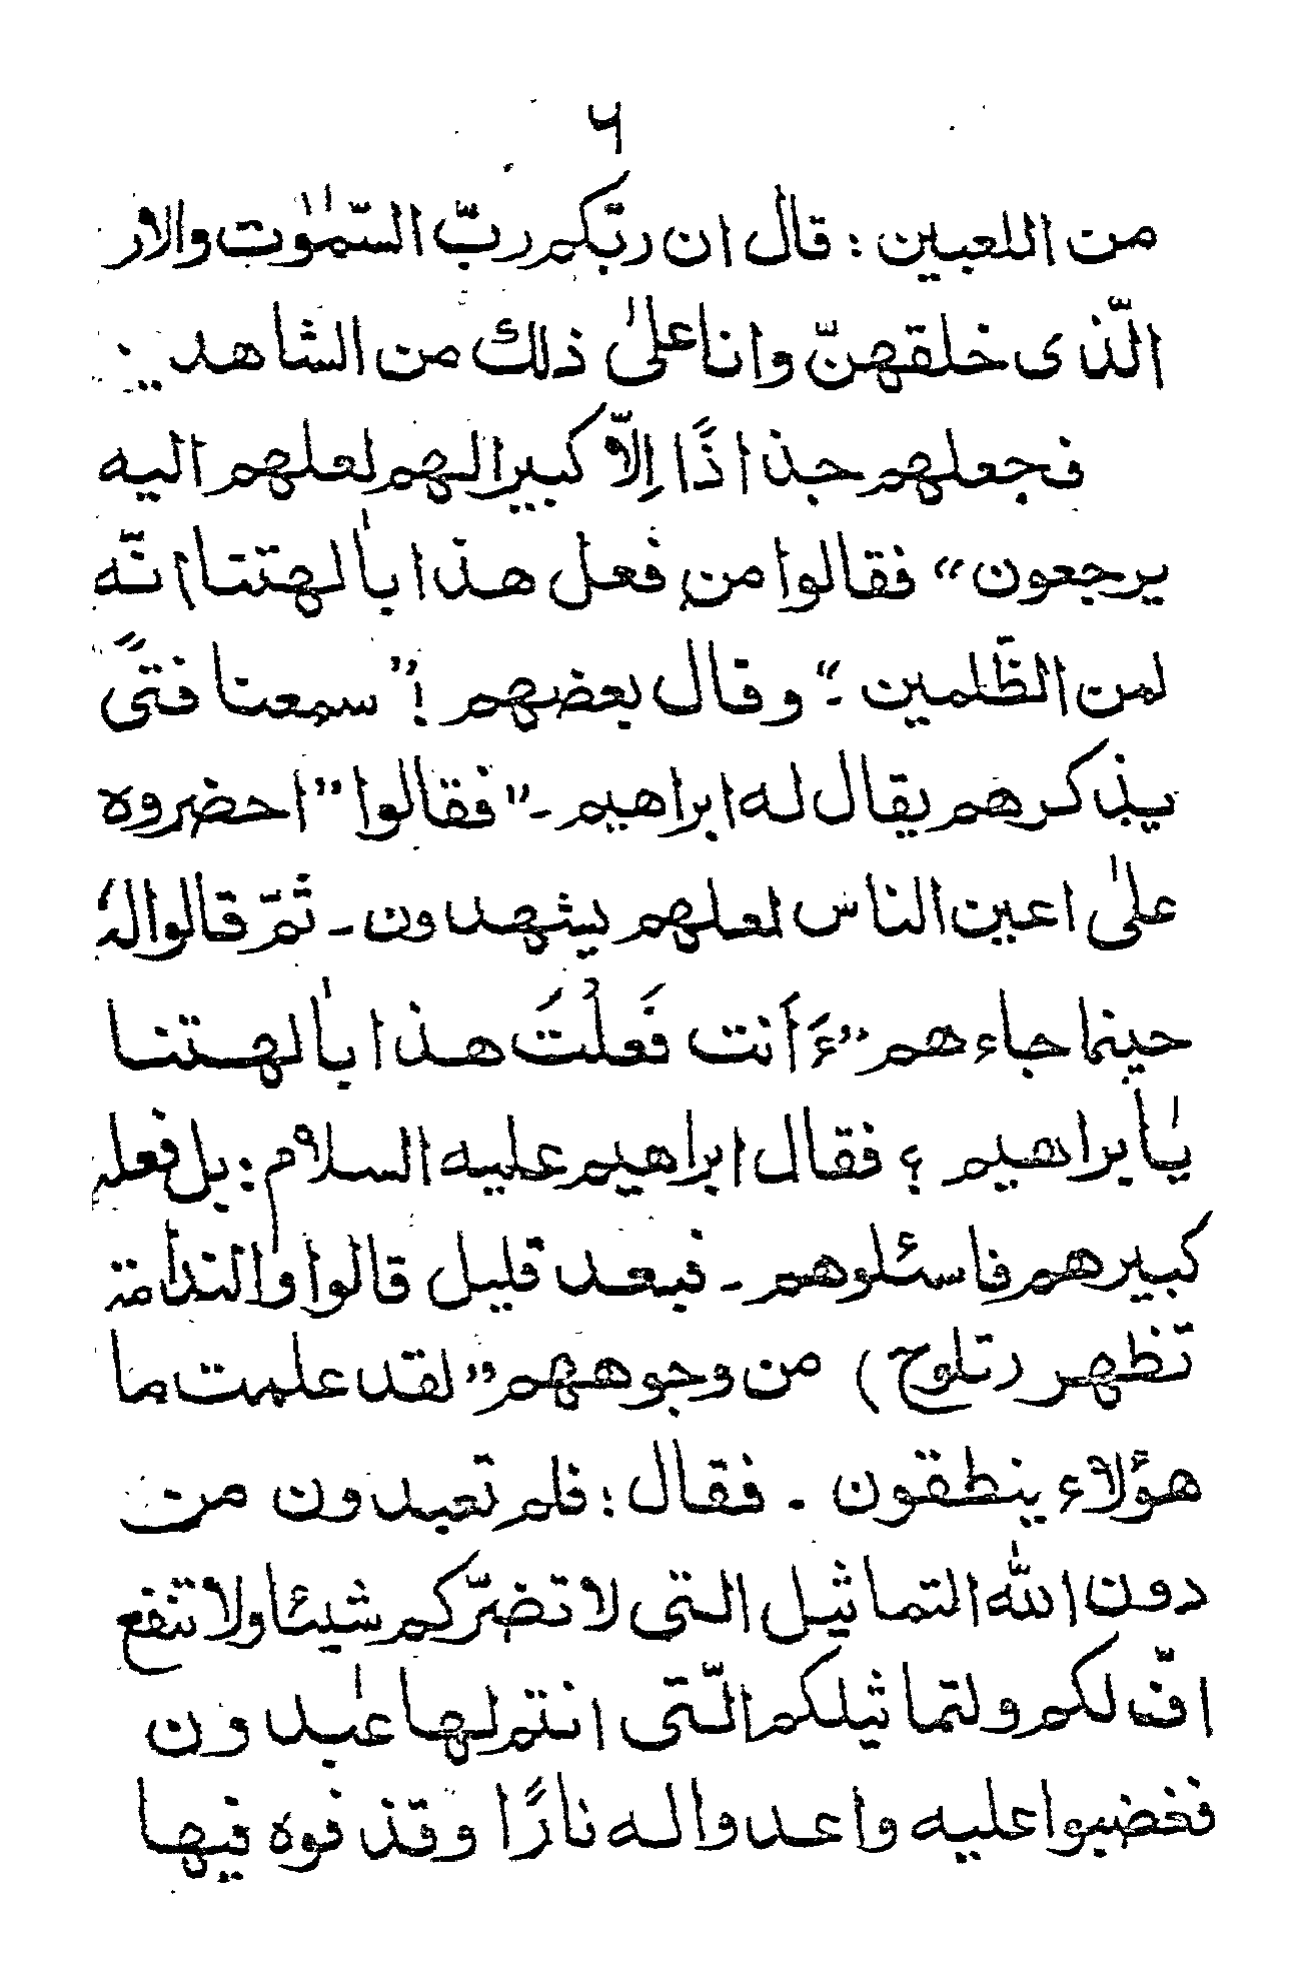 ٦
من اللعبين : قال ان ربّكم ربّ السّمٰوٰت والار
الّذى خلقهنّ وانا علىٰ ذلك من الشاهد
فجعلهم جذاذًا إلاّ كبيرا لهم لعلهم اليه
يرجعون“ فقالوا من فعل هذا بآلهتنا انّه
لمن الظّلمين ۔“ وقال بعضهم ! ”سمعنا فتىً
يذكرهم يقال له ابراهيم ۔“ فقالوا ”احضروه
علىٰ اعين الناس لعلهم يشهدون ۔ ثمّ قالوا لهٗ
حينما جاءهم ”ءَاَنت فَعلْتَ هذا بآلهتنا
يٰابراهيم ؟ فقال ابراهيم عليه السلام : بل فعله
كبيرهم فاسئلوهم ۔ فبعد قليل قالوا والندامة
تظهر (تلوح) من وجوههم ”لقد علمت ما
هؤلاء ينطقون ۔ فقال : فلم تعبدون من
دون الله التماثيل التى لا تضرّكم شيئا ولا تنفع
افّ لكم ولتماثيلكم الّتى انتم لها عٰبدون
فغضبوا عليه واعدوا له نارًا وقذفوه فيها